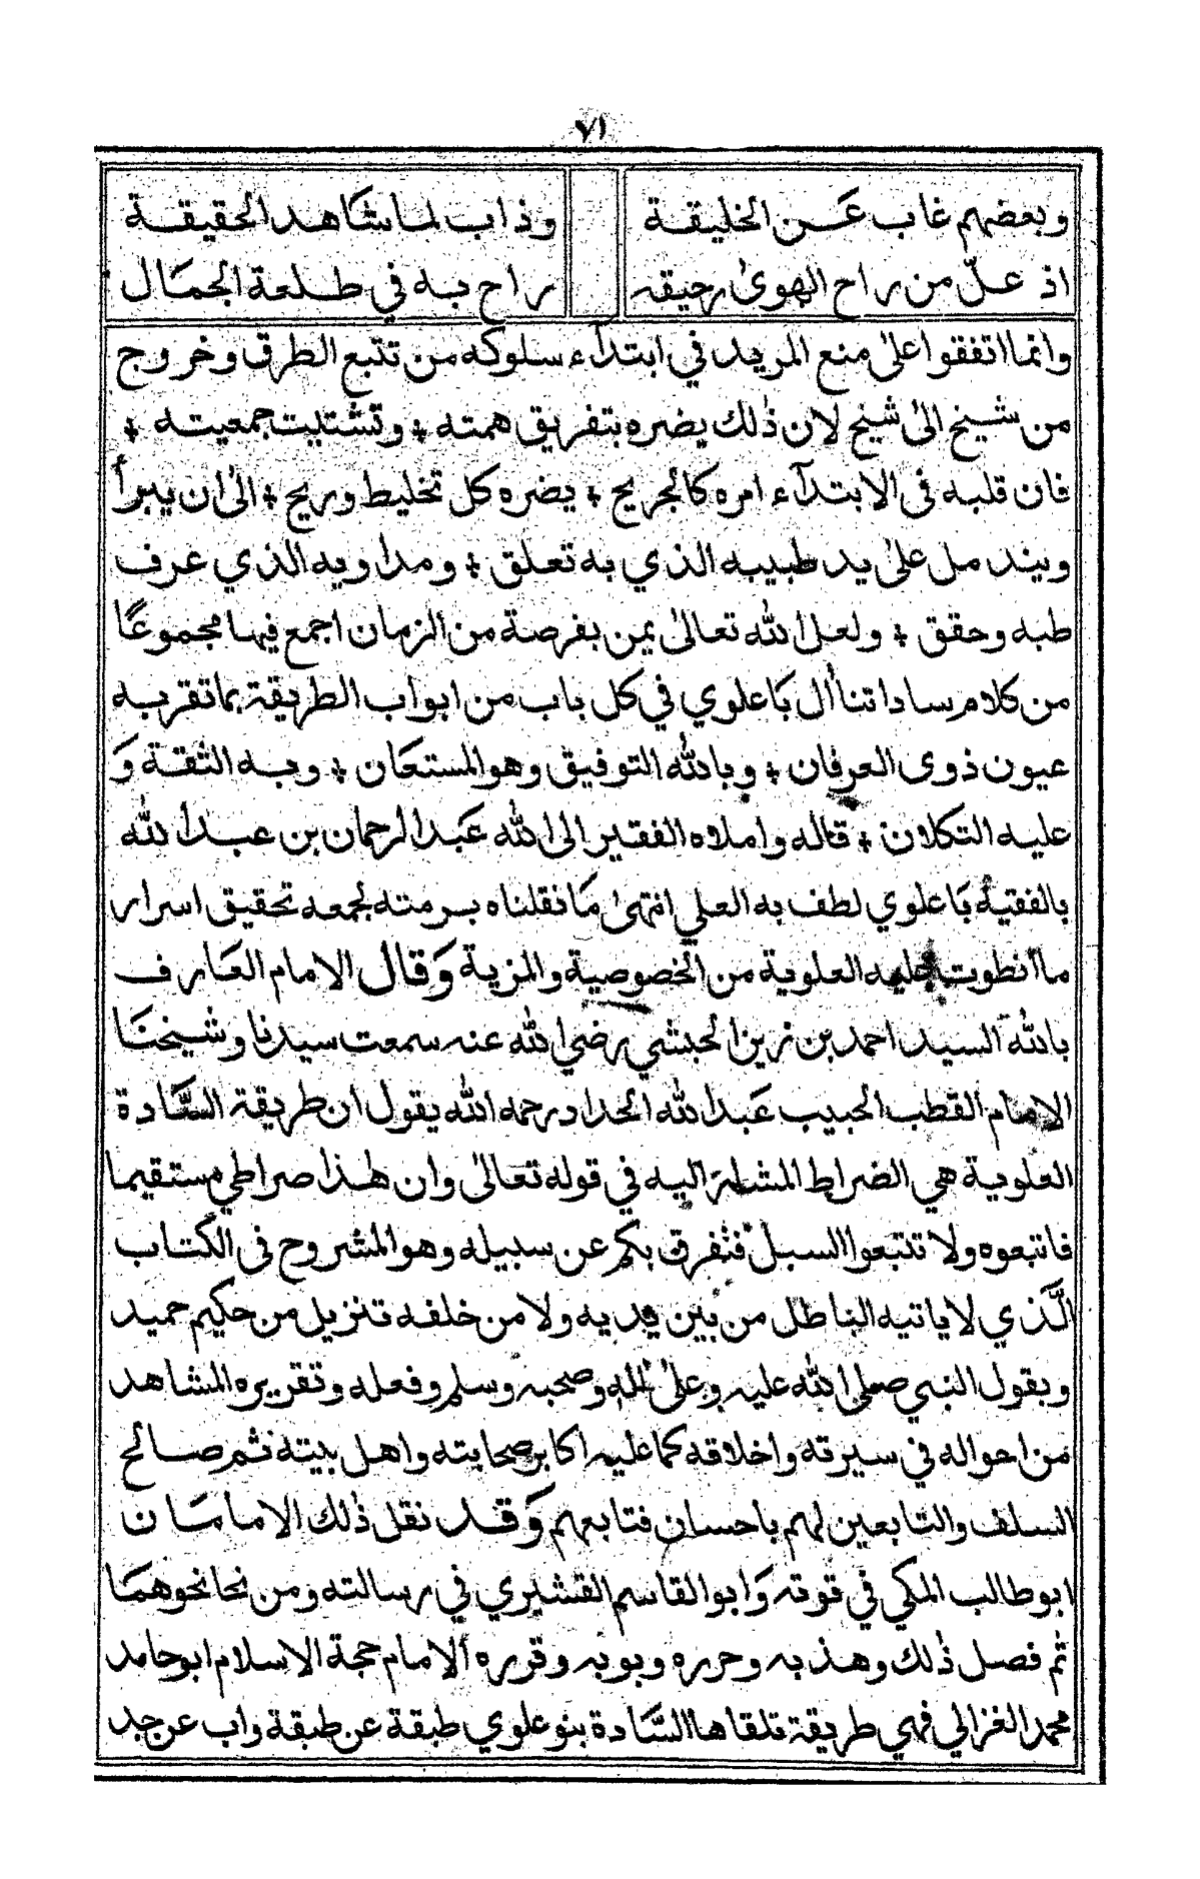 ٧١
وبعضهم غاب عن الخليقة وذاب لما شاهد الحقيقة
اذ علّ من راح الهوىٰ رحيقه راح به في طلعة الجمال
وانما اتفقوا علىٰ منع المريد في ابتدآء سلوكه من تتبع الطرق وخروج
من شيخ الىٰ شيخ لان ذٰلك يضره بتفريق همته ÷ وتشتيت جمعيته ÷
فان قلبه فى الابتدآء امره كالجريح ÷ يضره كل تخليط وريح ÷ الىٰ ان يبرأ
ويندمل علىٰ يد طبيبه الذي به تعلق ÷ ومداويه الذي عرف
طبه وحقق ÷ ولعل الله تعالىٰ يمن بفرصة من الزمان اجمع فيها مجموعًا
من كلام ساداتنا أل باعلوي في كل باب من ابواب الطريقة بما تقر به
عيون ذوى العرفان ÷ وبالله التوفيق وهو المستعان ÷ وبه الثقة وَ
عليه التكلان ÷ قاله واملاه الفقير الى الله عبد الرحمان بن عبد الله
بالفقيه باعلوي لطف به العلي انتهىٰ ما نقلناه برمته لجمعه تحقيق اسرار
ما انطوت عليه العلوية من الخصوصية والمزية وَقال الامام العارف
بالله السيد احمد بن زين الحبشي رضي الله عنه سمعت سيدنا وشيخنا
الامام القطب الحبيب عبد الله الحداد رحمه الله يقول ان طريقة السَّادة
العلوية هي الصراط المشار اليه في قوله تعالىٰ وان هٰذا صراطي مستقيما
فاتبعوه ولا تتبعوا السبل فتفرق بكم عن سبيله وهو المشروح فى الكتاب
الَّذي لا ياتيه الباطل من بين يديه ولا من خلفه تنزيل من حكيم حميد
وبقول النبي صلى الله عليه وعلىٰ اٰله وصحبه وسلم وفعله وتقريره المشاهد
من احواله في سيرته واخلاقه كما عليه اكابر صحابته واهل بيته ثم صالح
السلف والتابعين لهم باحسان فتابعهم وَقد نقل ذٰلك الامامان
ابو طالب المكي في قوته وَابو القاسم القشيري في رسالته ومن نحا نحوهما
ثم فصل ذٰلك وهذبه وحرره وبوبه وقرره الامام حجة الاسلام ابو حامد
محمد الغزالي فهي طريقة تلقاها السَّادة بنو علوي طبقة عن طبقة واب عن جد